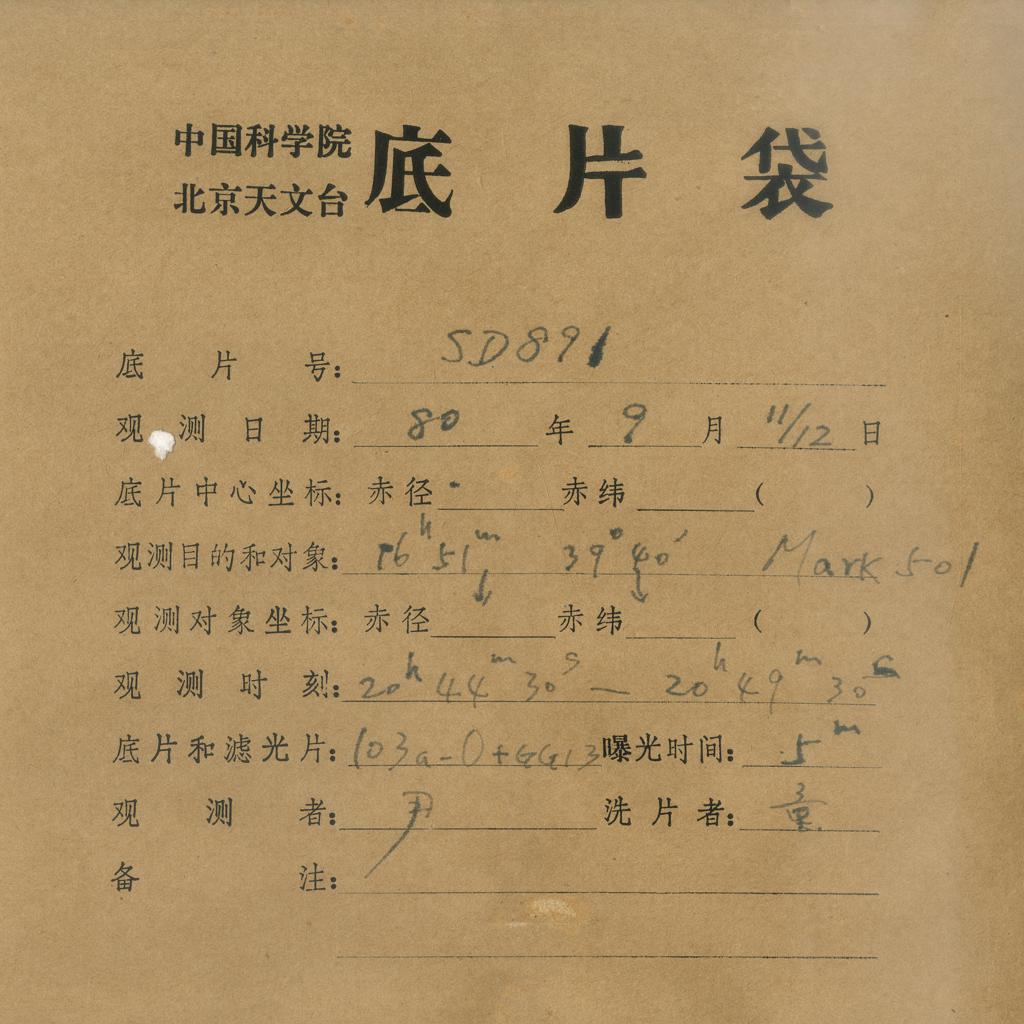 中国科学院
北京天文台
底片袋
底片号: SD891
观测日期: 80 年 9 月 11/12 日
底片中心坐标: 赤径 赤纬 ( )
观测目的和对象: 16h 51m 39° 40′ Mark 501
观测对象坐标: 赤径 ↓ 赤纬 ↓ ( )
观测时刻: 20h 44m 30s — 20h 49m 30s
底片和滤光片: 103a-O+GG13 曝光时间: 5m
观测者: 尹 洗片者: 童
备注: